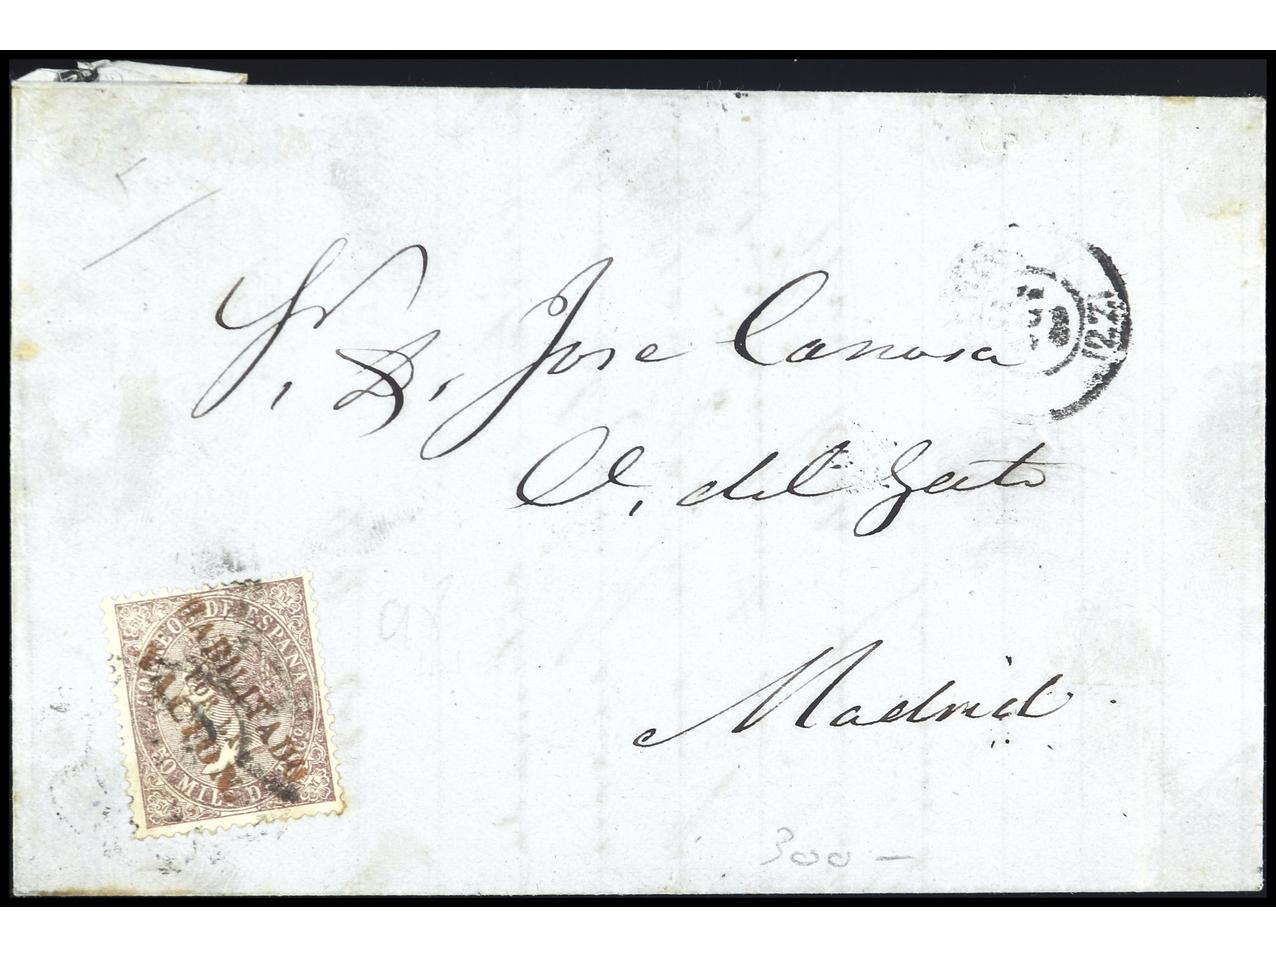 Sr. D. Jose Canosa
C. del Gato
Madrid
CORREOS DE ESPAÑA
HABILITADO
POR LA
NACION
50 MILS DE
98
300 —